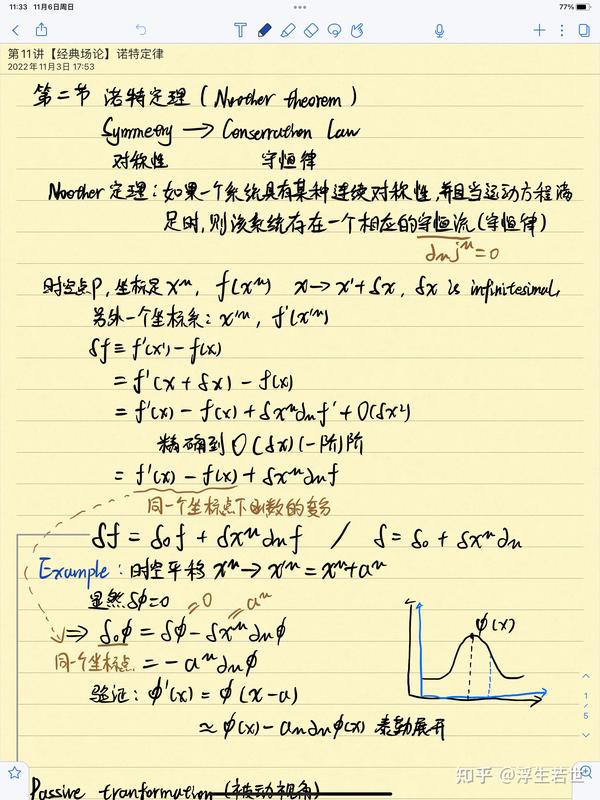 11:33 11月6日周日
77%
第11讲【经典场论】诺特定律
2022年11月3日 17:53
第二节 诺特定理 ( Noether theorem )
Symmetry → Conservation Law
对称性 守恒律
Noether 定理: 如果一个系统具有某种连续对称性, 并且当运动方程满
足时, 则该系统存在一个相应的守恒流 (守恒律)
∂μ j^μ = 0
时空点P, 坐标是 x^μ, f(x^μ) x → x' + δx, δx is infinitesimal,
另外一个坐标系: x'^μ, f'(x'^μ)
δf ≡ f'(x') - f(x)
= f'(x + δx) - f(x)
= f'(x) - f(x) + δx^μ ∂μ f' + O(δx²)
精确到 O(δx) (一阶) 阶
= f'(x) - f(x) + δx^μ ∂μ f
同一个坐标点下函数的变分
δf = δ₀f + δx^μ ∂μ f / δ = δ₀ + δx^μ ∂μ
Example: 时空平移 x^μ → x'^μ = x^μ + a^μ
显然 δϕ = 0 = 0 = a^μ
⇒ δ₀ϕ = δϕ - δx^μ ∂μ ϕ
同一个坐标点 = - a^μ ∂μ ϕ
ϕ(x)
验证: ϕ'(x) = ϕ(x-a)
≈ ϕ(x) - aμ ∂μ ϕ(x) 泰勒展开
1
/
5
Passive tranformation (被动视角)
知乎 @浮生若世